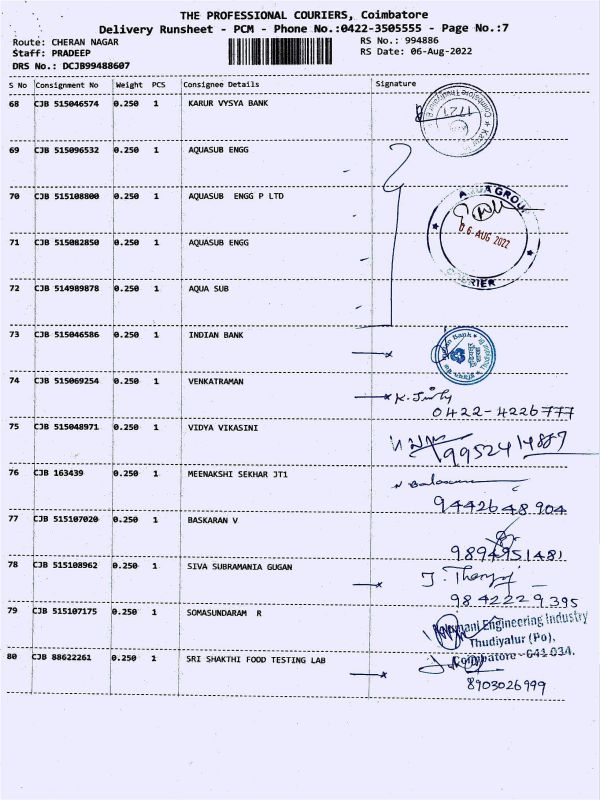 THE PROFESSIONAL COURIERS, Coimbatore
Delivery Runsheet - PCM - Phone No.:0422-3505555 - Page No.:7
Route: CHERAN NAGAR RS No.: 994886
Staff: PRADEEP RS Date: 06-Aug-2022
DRS No.: DCJB99488607
S No Consignment No Weight PCS Consignee Details Signature
68 CJB 515046574 0.250 1 KARUR VYSYA BANK
1721
69 CJB 515096532 0.250 1 AQUASUB ENGG
70 CJB 515108800 0.250 1 AQUASUB ENGG P LTD
GROUP
06 AUG 2022
71 CJB 515082850 0.250 1 AQUASUB ENGG
72 CJB 514989878 0.250 1 AQUA SUB
73 CJB 515046586 0.250 1 INDIAN BANK
74 CJB 515069254 0.250 1 VENKATRAMAN
0422-4226777
75 CJB 515048971 0.250 1 VIDYA VIKASINI
76 CJB 163439 0.250 1 MEENAKSHI SEKHAR JT1
9442648904
77 CJB 515107020 0.250 1 BASKARAN V
9894951481
78 CJB 515108962 0.250 1 SIVA SUBRAMANIA GUGAN
9842229395
79 CJB 515107175 0.250 1 SOMASUNDARAM R
Engineering Industry
Thudiyalur (Po),
Coimbatore - 641 034.
80 CJB 88622261 0.250 1 SRI SHAKTHI FOOD TESTING LAB
8903026999